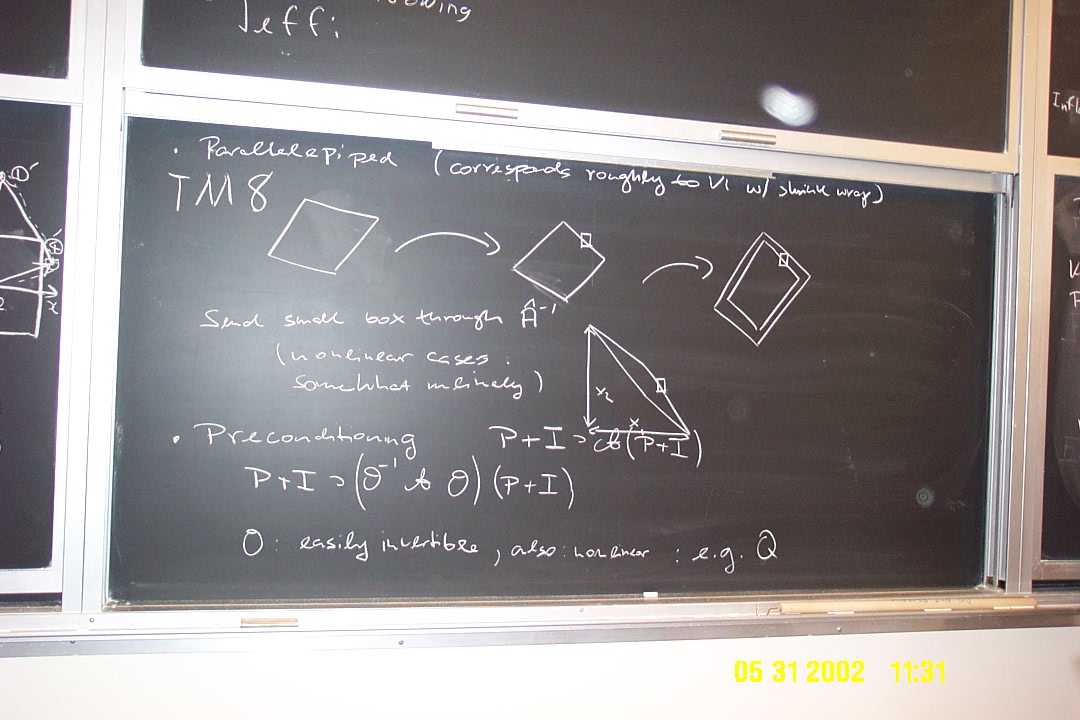 Jeff:
. Parallelepiped (corresponds roughly to VI w/ shrink wrap)
TM8
Send small box through Â⁻¹
(nonlinear cases.
somewhat unlikely)
x₂
x₁
. Preconditioning P+I ⊃ A(P+I)
P+I ⊃ (O⁻¹ A O)(P+I)
O: easily invertible, also: nonlinear: e.g. Q
x
05 31 2002 11:31